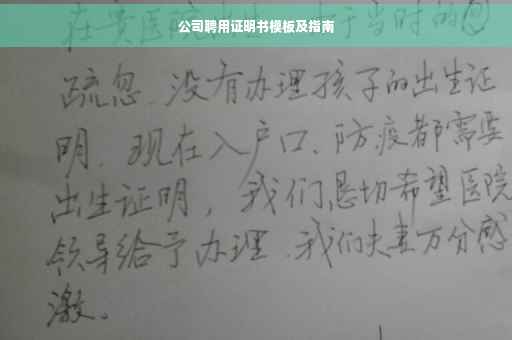 公司聘用证明书模板及指南
在贵医院出生，由于当时的
疏忽、没有办理孩子的出生证
明、现在入户口、防疫都需要
出生证明，我们恳切希望医院
领导给予办理、我们夫妻万分感
激。